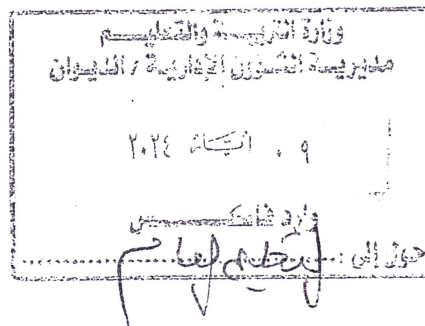 وزارة التربية والتعليم
مديرية الشؤون الإدارية / الديوان
٠٩ أيار ٢٠٢٤
وارد فاكس
حول إلى :